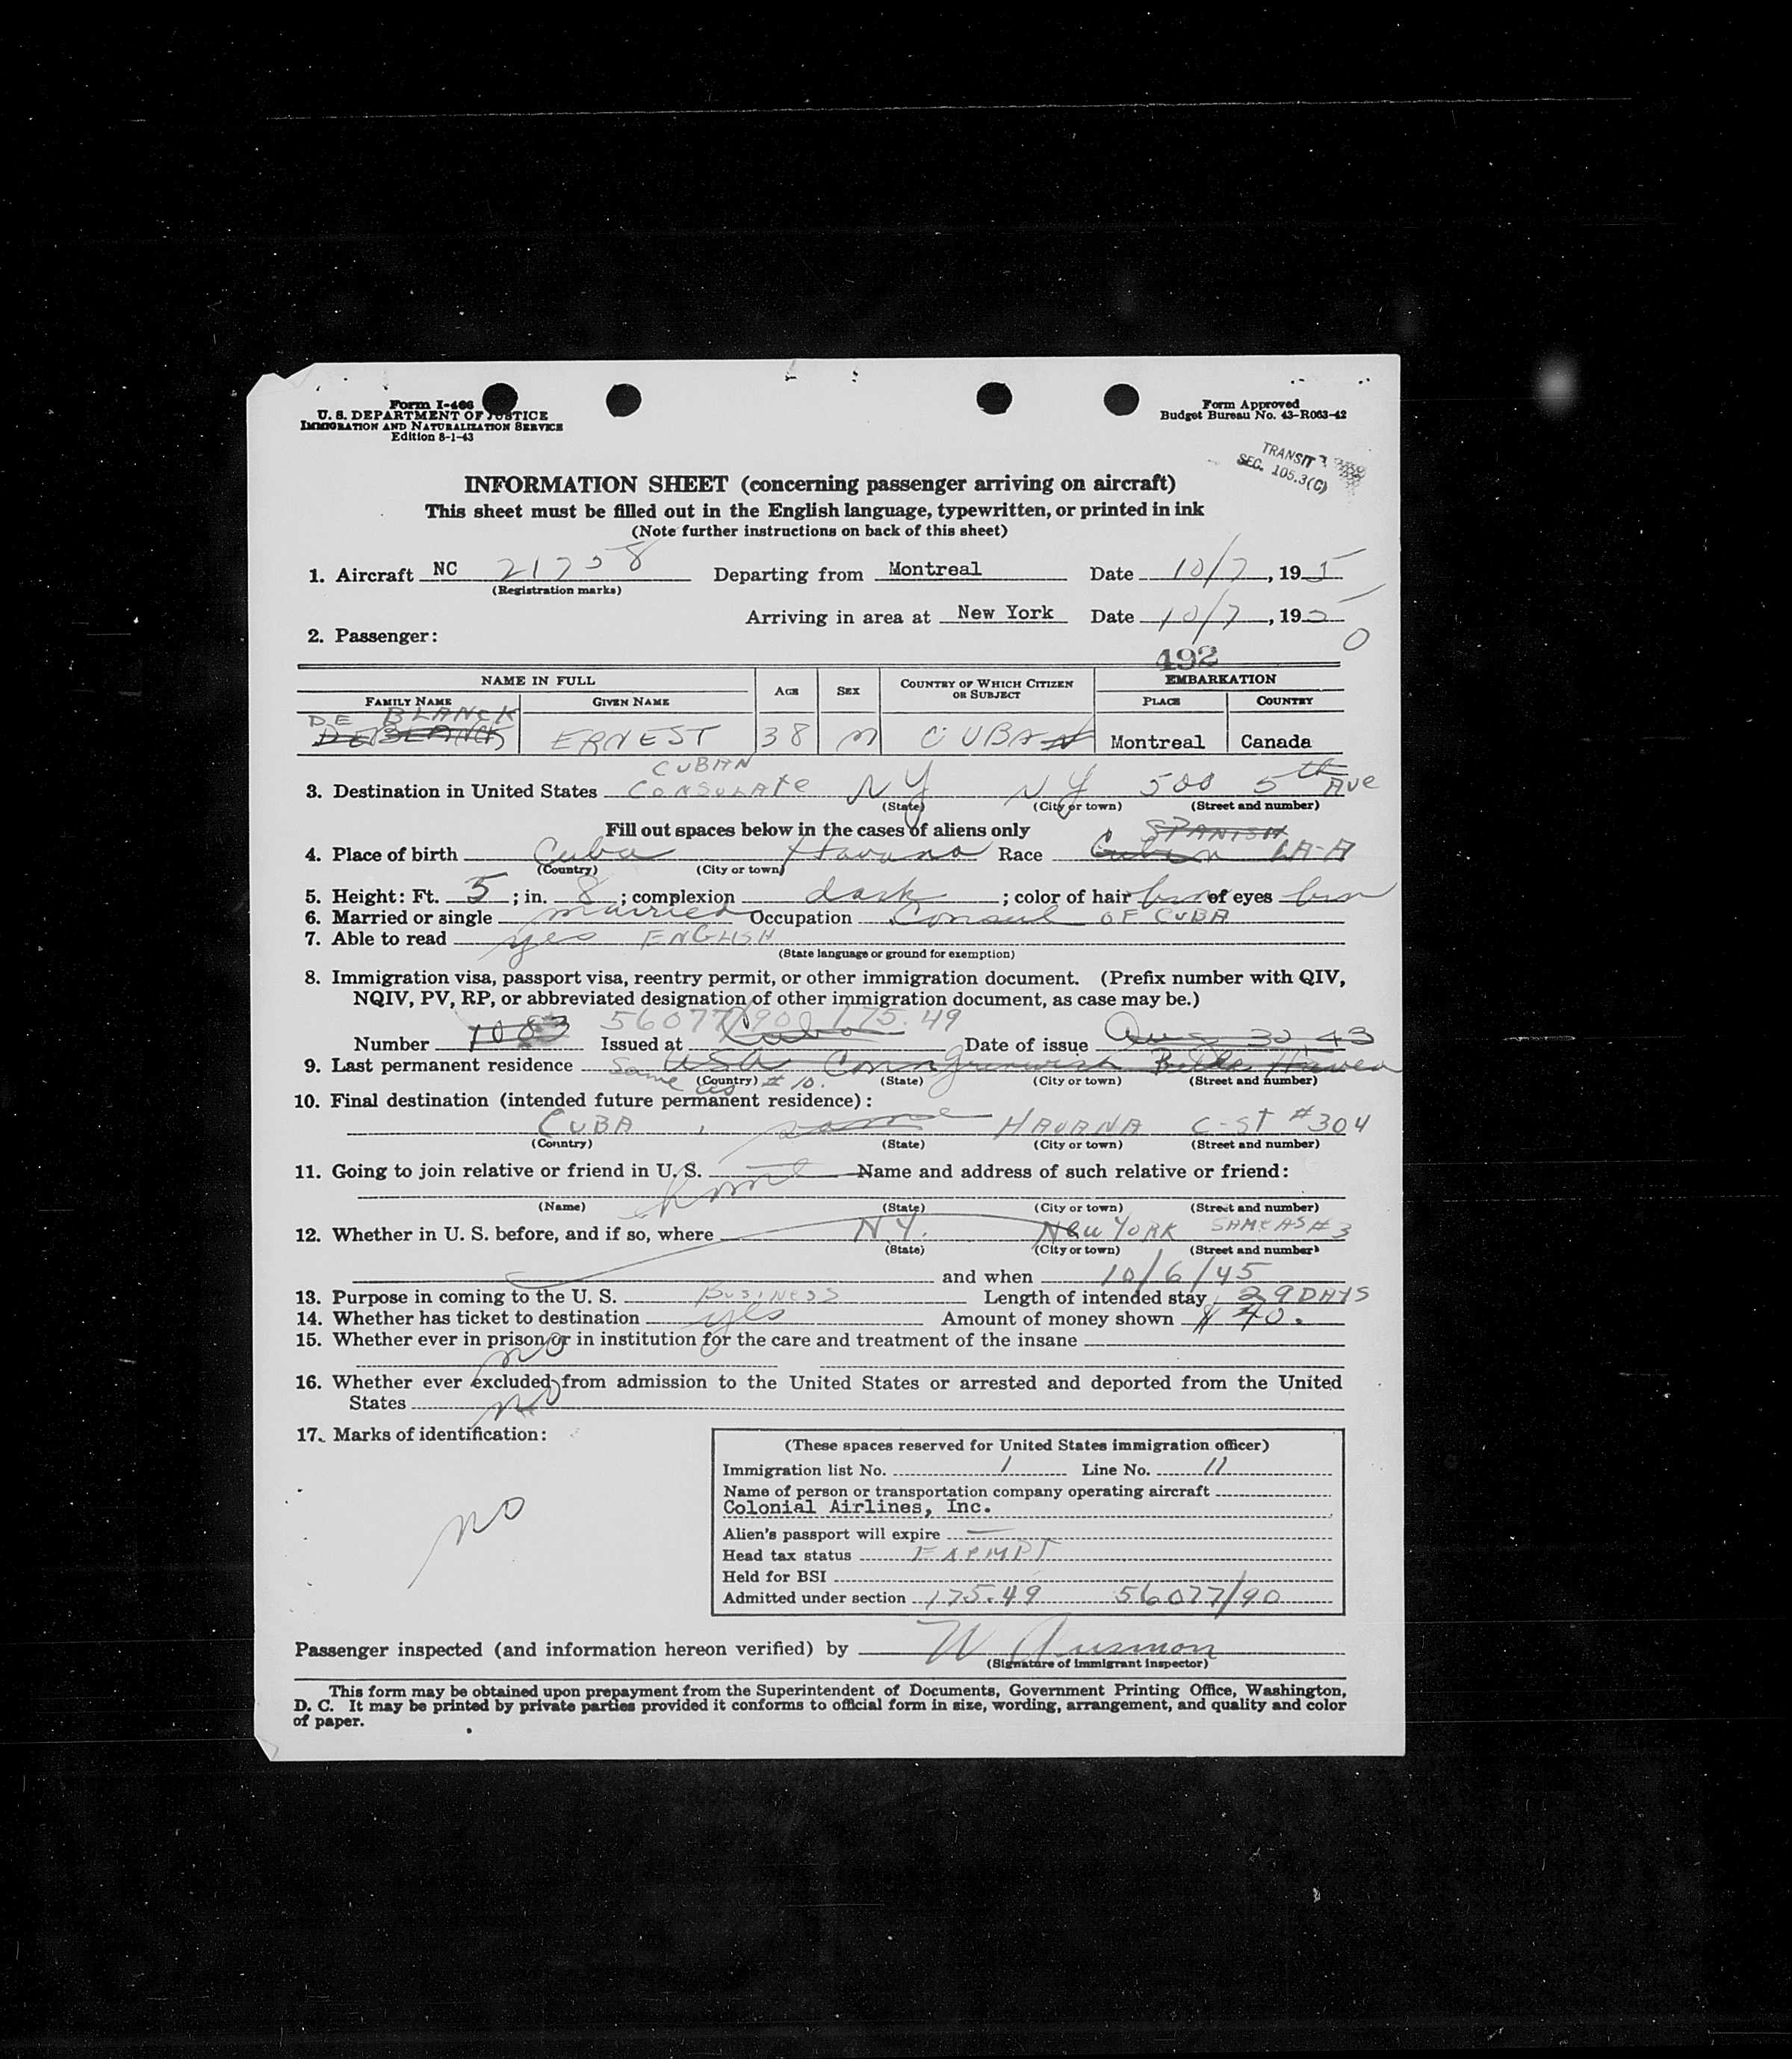 Form I-466
U. S. DEPARTMENT OF JUSTICE
IMMIGRATION AND NATURALIZATION SERVICE
Edition 8-1-43
Form Approved
Budget Bureau No. 43-R063-42
TRANSIT
SEC. 105.3(C)
INFORMATION SHEET (concerning passenger arriving on aircraft)
This sheet must be filled out in the English language, typewritten, or printed in ink
(Note further instructions on back of this sheet)
1. Aircraft NC 21758 Departing from Montreal Date 10/7, 195
(Registration marks)
Arriving in area at New York Date 10/7, 195
2. Passenger:
0
492
NAME IN FULL AGE SEX COUNTRY OF WHICH CITIZEN OR SUBJECT EMBARKATION
FAMILY NAME GIVEN NAME PLACE COUNTRY
DE BLANCK
DEBLANCK ERNEST 38 M CUBAN Montreal Canada
CUBAN
3. Destination in United States CONSULATE NY NY 500 5th AVE
(State) (City or town) (Street and number)
Fill out spaces below in the cases of aliens only
SPANISH
4. Place of birth Cuba Havana Race Cuban LA-A
(Country) (City or town)
5. Height: Ft. 5; in. 8; complexion dark; color of hair brn of eyes brn
6. Married or single married Occupation Consul OF CUBA
7. Able to read yes ENGLISH
(State language or ground for exemption)
8. Immigration visa, passport visa, reentry permit, or other immigration document. (Prefix number with QIV,
NQIV, PV, RP, or abbreviated designation of other immigration document, as case may be.)
56077/90 175.49
Number 1083 Issued at Cuba Date of issue Aug 30, 43
9. Last permanent residence USA Conn Greenwich Haven
Same as #10.
(Country) (State) (City or town) (Street and number)
10. Final destination (intended future permanent residence):
CUBA, same HAVANA C-ST #304
(Country) (State) (City or town) (Street and number)
11. Going to join relative or friend in U. S. Name and address of such relative or friend:
(Name) (State) (City or town) (Street and number)
12. Whether in U. S. before, and if so, where NY. New YORK SAME AS #3
(State) (City or town) (Street and number)
and when 10/6/45
13. Purpose in coming to the U. S. BUSINESS Length of intended stay 29 DAYS
14. Whether has ticket to destination yes Amount of money shown $ 40.
15. Whether ever in prison or in institution for the care and treatment of the insane
no
16. Whether ever excluded from admission to the United States or arrested and deported from the United
States no
17. Marks of identification:
no
(These spaces reserved for United States immigration officer)
Immigration list No. 1 Line No. 11
Name of person or transportation company operating aircraft
Colonial Airlines, Inc.
Alien's passport will expire —
Head tax status EXEMPT
Held for BSI
Admitted under section 175.49 56077/90
Passenger inspected (and information hereon verified) by W
(Signature of immigrant inspector)
This form may be obtained upon prepayment from the Superintendent of Documents, Government Printing Office, Washington,
D. C. It may be printed by private parties provided it conforms to official form in size, wording, arrangement, and quality and color
of paper.